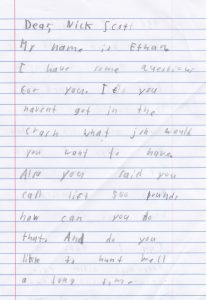 Dear, Nick Scott
My name is Ethan
I have some questions
for you. If you
havent got in the
crash what job would
you want to have.
Also you said you
can lift 500 pounds
how can you do
that. And do you
like to hunt well
a long time